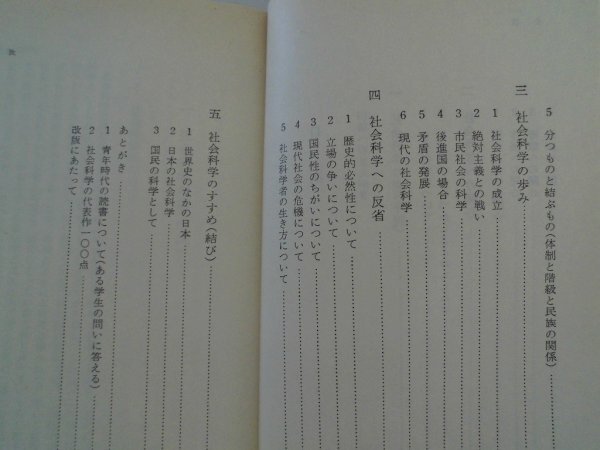 5 分つものと結ぶもの(体制と階級と民族の関係)
三 社会科学の歩み
1 社会科学の成立
2 絶対主義との戦い
3 市民社会の科学
4 後進国の場合
5 矛盾の発展
6 現代の社会科学
四 社会科学への反省
1 歴史的必然性について
2 立場の争いについて
3 国民性のちがいについて
4 現代社会の危機について
5 社会科学者の生き方について
五 社会科学のすすめ(結び)
1 世界史のなかの日本
2 日本の社会科学
3 国民の科学として
あとがき
1 青年時代の読書について(ある学生の問いに答える)
2 社会科学の代表作一〇〇点
改版にあたって